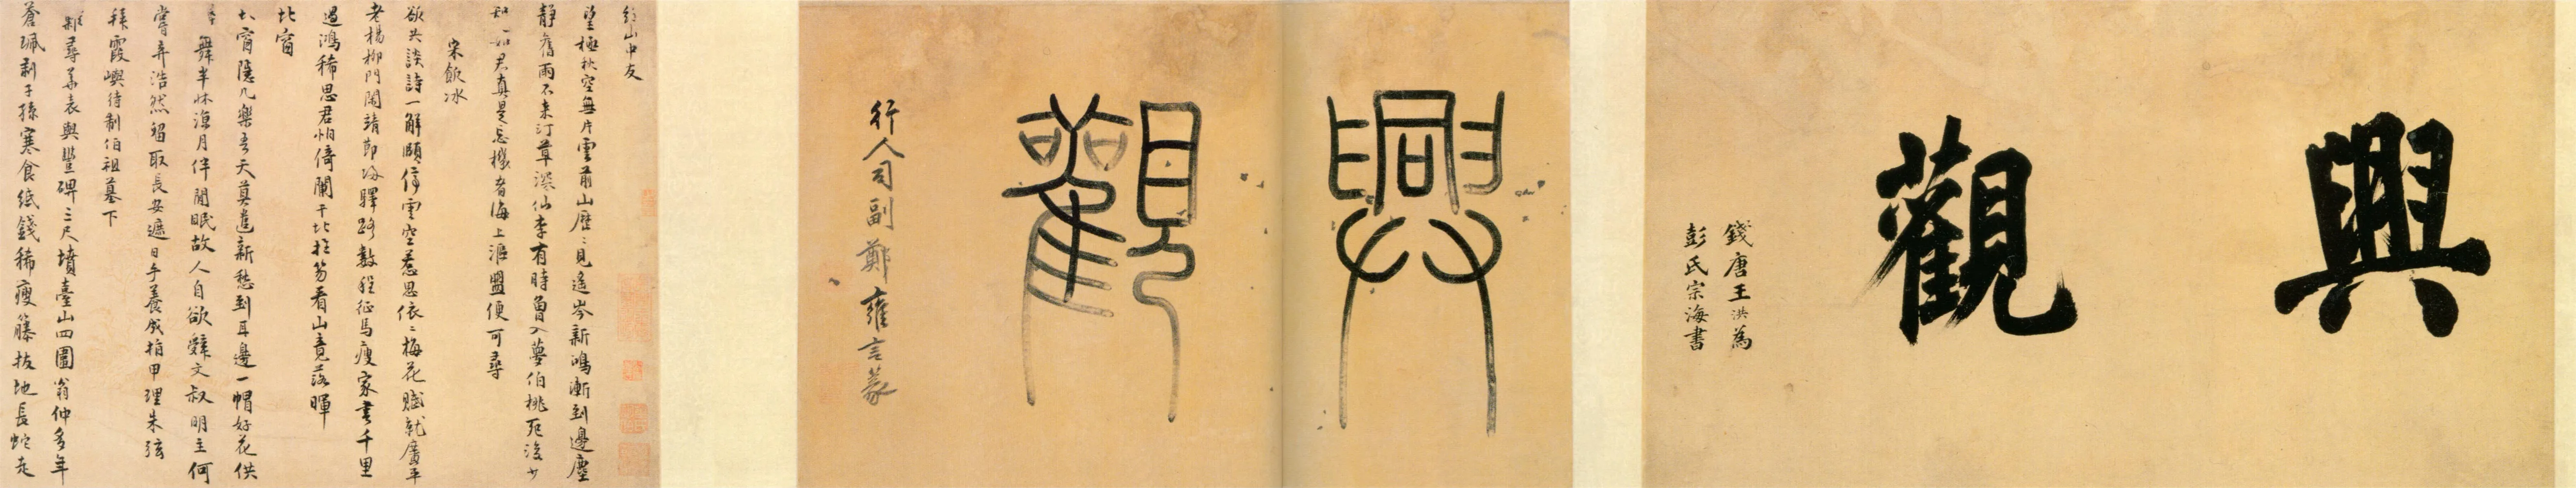 興觀
錢唐王洪為
彭氏宗海書
興觀
行人司副鄭雍言篆
山中友
望極秋空無片雲前山歷〻見遙岑新鴻漸到邊塵
靜舊雨不來汀草深仙李有時曾入夢伯桃死後少
知如君真是忘機者海上漚盟便可尋
宋飯冰
欲共談詩一解頤停雲空惹思依〻梅花賦就廣平
老楊柳門閑靖節歸驛路數程征馬瘦家書千里
過鴻稀思君怕倚闌干北拄笏看山竟落暉
北窗
北窗隱几樂吾天莫遣新愁到耳邊一帽好花供
舞半牀涼月伴閒眠故人自欲辭文叔明主何
嘗弃浩然留取長安遮日手養成指甲理朱弦
拜霞嶼待制伯祖墓下
難尋華表與豐碑三尺墳臺山四圍翁仲多年
蒼珮剥子孫寒食紙錢稀瘦藤拔地長蛇走